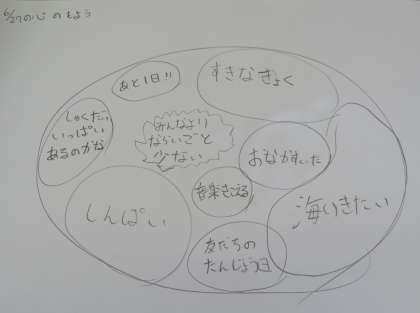 6/27の心のもよう
あと1日!!
すきなきょく
しゅくだい
いっぱい
あるのかな
みんなより
ならいごと
少ない
おなかすいた
音楽きこえる
海いきたい
しんぱい
友だちの
たんじょう日